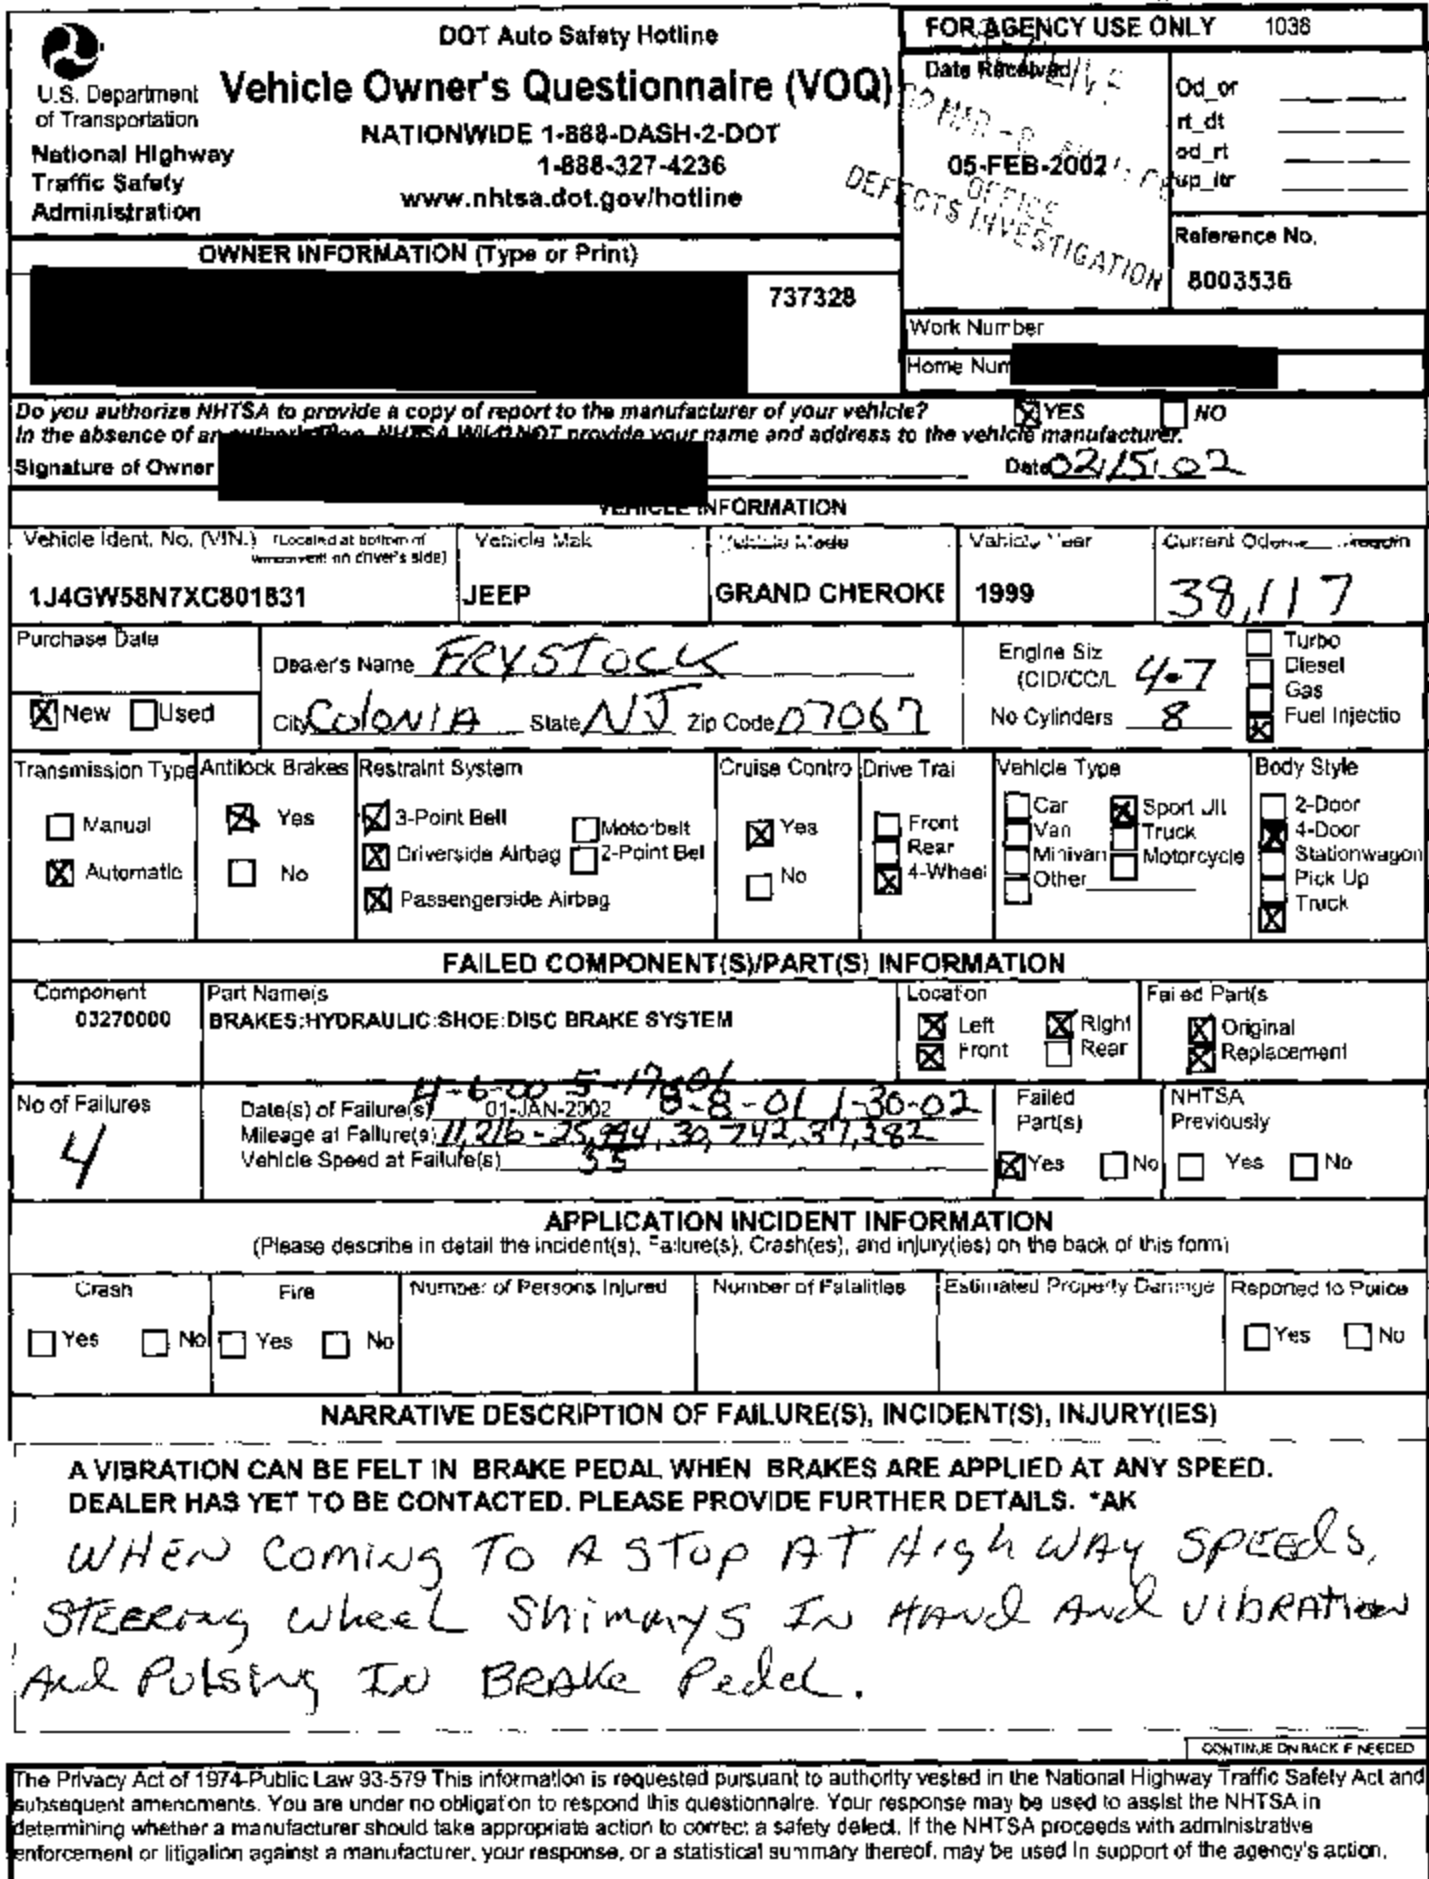 DOT Auto Safety Hotline
Vehicle Owner's Questionnaire (VOQ)
NATIONWIDE 1-888-DASH-2-DOT
1-888-327-4236
www.nhtsa.dot.gov/hotline
U.S. Department
of Transportation
National Highway
Traffic Safety
Administration
FOR AGENCY USE ONLY 1038
Date Received
05-FEB-2002
OFFICE
DEFECTS INVESTIGATION
Od_or
rt_dt
od_rt
up_itr
Reference No.
8003536
OWNER INFORMATION (Type or Print)
737328
Work Number
Home Num
Do you authorize NHTSA to provide a copy of report to the manufacturer of your vehicle? YES NO
In the absence of an NHTSA WILL NOT provide your name and address to the vehicle manufacturer.
Signature of Owner Date 02/15/02
VEHICLE INFORMATION
Vehicle Ident. No. (VIN.) (Located at bottom of
on driver's side)
1J4GW58N7XC801831
Vehicle Mak
JEEP
GRAND CHEROKE
Vehicle Year
1999
Current
38,117
Purchase Date
New Used
Dealer's Name FRYSTOCK
City COLONIA State NJ Zip Code 07067
Engine Siz
(CID/CC/L 4.7
No Cylinders 8
Turbo
Diesel
Gas
Fuel Injectio
Transmission Type
Manual
Automatic
Antilock Brakes
Yes
No
Restraint System
3-Point Belt
Driverside Airbag
Passengerside Airbag
Motorbelt
2-Point Bel
Cruise Contro
Yes
No
Drive Trai
Front
Rear
4-Wheel
Vehicle Type
Car
Van
Minivan
Other
Sport Util
Truck
Motorcycle
Body Style
2-Door
4-Door
Stationwagon
Pick Up
Truck
FAILED COMPONENT(S)/PART(S) INFORMATION
Component
03270000
Part Name(s
BRAKES:HYDRAULIC:SHOE:DISC BRAKE SYSTEM
Location
Left Right
Front Rear
Failed Part(s
Original
Replacement
No of Failures
4
4-6-00 5-17-01
Date(s) of Failure(s) 01-JAN-2002 8-8-01 1-30-02
Mileage at Failure(s) 11,216 - 25,994, 30,742, 37,282
Vehicle Speed at Failure(s) 55
Failed
Part(s)
Yes No
NHTSA
Previously
Yes No
APPLICATION INCIDENT INFORMATION
(Please describe in detail the incident(s), Failure(s), Crash(es), and injury(ies) on the back of this form)
Crash
Yes No
Fire
Yes No
Number of Persons Injured
Number of Fatalities
Estimated Property Damage
Reported to Police
Yes No
NARRATIVE DESCRIPTION OF FAILURE(S), INCIDENT(S), INJURY(IES)
A VIBRATION CAN BE FELT IN BRAKE PEDAL WHEN BRAKES ARE APPLIED AT ANY SPEED.
DEALER HAS YET TO BE CONTACTED. PLEASE PROVIDE FURTHER DETAILS. *AK
WHEN COMING TO A STOP AT HIGHWAY SPEEDS,
STEERING WHEEL SHIMMYS IN HAND AND VIBRATION
AND PULSING IN BRAKE PEDEL.
CONTINUE ON BACK IF NEEDED
The Privacy Act of 1974-Public Law 93-579 This information is requested pursuant to authority vested in the National Highway Traffic Safety Act and
subsequent amendments. You are under no obligation to respond this questionnaire. Your response may be used to assist the NHTSA in
determining whether a manufacturer should take appropriate action to correct a safety defect. If the NHTSA proceeds with administrative
enforcement or litigation against a manufacturer, your response, or a statistical summary thereof, may be used in support of the agency's action.